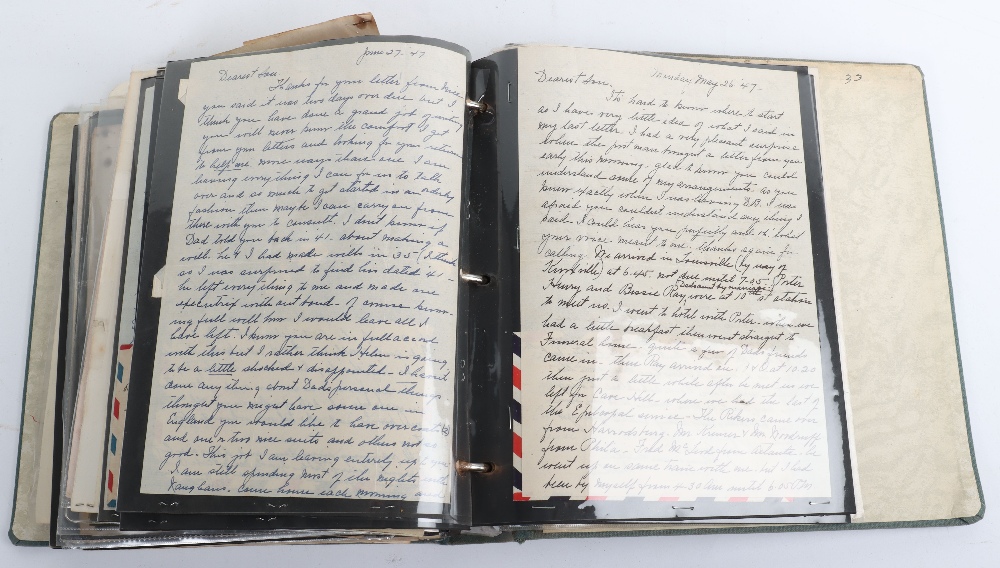 June 27-47
Dearest Son
Thanks for your letter from
you said it was two days over due but I
think you have done a grand job of
you will never know the comfort I get
from your letters and looking for your return
to help me more ways than one I am
leaving everything I can for us to talk
over and so much to get started in an orderly
fashion then maybe I can carry on from
there with you to consult. I don't know if
Dad told you back in 41- about making a
will he & I had made wills in 35 I think
so I was surprised to find his dated 41
he left everything to me and made me
executrix without bond - of course know-
ing full well how I would leave all I
have left. I know you are in full accord
with this but I rather think Helen is going
to be a little shocked & disappointed - I haven't
done anything about Dads personal things
thought you might have some one in
England you would like to have over coats
and one or two nice suits and others not so
good. This job I am leaving entirely up to you
I am still spending most of the nights with
come home each morning and
33
Monday, May 26 '47-
Dearest Son,
Its hard to know where to start
as I have very little idea of what I said in
my last letter. I had a very pleasant surprise
when the post man brought a letter from you
early this morning. glad to know you could
understand some of my arrangements, so you
knew exactly when I was leaving I was
afraid you couldn't understand anything I
said. I could hear you perfectly and it helped
your voice meant to me. Thanks again for
calling. We arrived in Louisville (by way of
Knoxville) at 6.45 not due until 7-05. Porter
Henry and Bessie Ray, were at 10th st station
to meet us. I went to hotel with Porter, where we
had a little breakfast then went straight to
Funeral home - quite a few of Dads friends
came in - then Ray arrived at 10.20
then just a little while after he met us we
left for Cave Hill where we had the rest of
the Episcopal service - The came over
from Harrodsburg. Mr & Mr
from Phila. from Atlanta - he
went up on same train with me. but I had
been by myself from 4-30 until 6.05